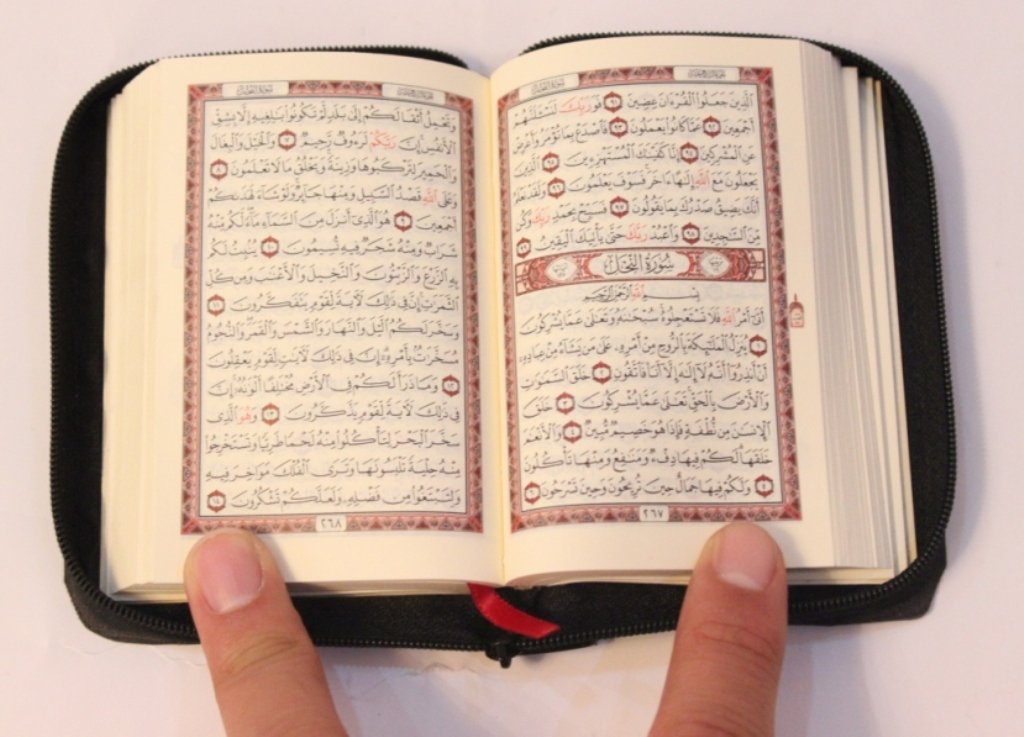 ٱلَّذِينَ جَعَلُوا۟ ٱلْقُرْءَانَ عِضِينَ ٩١ فَوَرَبِّكَ لَنَسْـَٔلَنَّهُمْ
أَجْمَعِينَ ٩٢ عَمَّا كَانُوا۟ يَعْمَلُونَ ٩٣ فَٱصْدَعْ بِمَا تُؤْمَرُ وَأَعْرِضْ
عَنِ ٱلْمُشْرِكِينَ ٩٤ إِنَّا كَفَيْنَـٰكَ ٱلْمُسْتَهْزِءِينَ ٩٥ ٱلَّذِينَ
يَجْعَلُونَ مَعَ ٱللَّهِ إِلَـٰهًا ءَاخَرَ فَسَوْفَ يَعْلَمُونَ ٩٦ وَلَقَدْ نَعْلَمُ
أَنَّكَ يَضِيقُ صَدْرُكَ بِمَا يَقُولُونَ ٩٧ فَسَبِّحْ بِحَمْدِ رَبِّكَ وَكُن
مِّنَ ٱلسَّـٰجِدِينَ ٩٨ وَٱعْبُدْ رَبَّكَ حَتَّىٰ يَأْتِيَكَ ٱلْيَقِينُ ٩٩
سُورَةُ النَّحْلِ
بِسْمِ ٱللَّهِ ٱلرَّحْمَـٰنِ ٱلرَّحِيمِ
أَتَىٰٓ أَمْرُ ٱللَّهِ فَلَا تَسْتَعْجِلُوهُ سُبْحَـٰنَهُۥ وَتَعَـٰلَىٰ عَمَّا يُشْرِكُونَ
١ يُنَزِّلُ ٱلْمَلَـٰٓئِكَةَ بِٱلرُّوحِ مِنْ أَمْرِهِۦ عَلَىٰ مَن يَشَآءُ مِنْ عِبَادِهِۦٓ
أَنْ أَنذِرُوٓا۟ أَنَّهُۥ لَآ إِلَـٰهَ إِلَّآ أَنَا۠ فَٱتَّقُونِ ٢ خَلَقَ ٱلسَّمَـٰوَٰتِ
وَٱلْأَرْضَ بِٱلْحَقِّ تَعَـٰلَىٰ عَمَّا يُشْرِكُونَ ٣ خَلَقَ
ٱلْإِنسَـٰنَ مِن نُّطْفَةٍ فَإِذَا هُوَ خَصِيمٌ مُّبِينٌ ٤ وَٱلْأَنْعَـٰمَ
خَلَقَهَا لَكُمْ فِيهَا دِفْءٌ وَمَنَـٰفِعُ وَمِنْهَا تَأْكُلُونَ
٥ وَلَكُمْ فِيهَا جَمَالٌ حِينَ تُرِيحُونَ وَحِينَ تَسْرَحُونَ ٦
٢٦٧
وَتَحْمِلُ أَثْقَالَكُمْ إِلَىٰ بَلَدٍ لَّمْ تَكُونُوا۟ بَـٰلِغِيهِ إِلَّا بِشِقِّ
ٱلْأَنفُسِ إِنَّ رَبَّكُمْ لَرَءُوفٌ رَّحِيمٌ ٧ وَٱلْخَيْلَ وَٱلْبِغَالَ
وَٱلْحَمِيرَ لِتَرْكَبُوهَا وَزِينَةً وَيَخْلُقُ مَا لَا تَعْلَمُونَ ٨
وَعَلَى ٱللَّهِ قَصْدُ ٱلسَّبِيلِ وَمِنْهَا جَآئِرٌ وَلَوْ شَآءَ لَهَدَىٰكُمْ
أَجْمَعِينَ ٩ هُوَ ٱلَّذِىٓ أَنزَلَ مِنَ ٱلسَّمَآءِ مَآءً لَّكُم مِّنْهُ
شَرَابٌ وَمِنْهُ شَجَرٌ فِيهِ تُسِيمُونَ ١٠ يُنۢبِتُ لَكُم
بِهِ ٱلزَّرْعَ وَٱلزَّيْتُونَ وَٱلنَّخِيلَ وَٱلْأَعْنَـٰبَ وَمِن كُلِّ
ٱلثَّمَرَٰتِ إِنَّ فِى ذَٰلِكَ لَـَٔايَةً لِّقَوْمٍ يَتَفَكَّرُونَ ١١
وَسَخَّرَ لَكُمُ ٱلَّيْلَ وَٱلنَّهَارَ وَٱلشَّمْسَ وَٱلْقَمَرَ وَٱلنُّجُومُ
مُسَخَّرَٰتٌۢ بِأَمْرِهِۦٓ إِنَّ فِى ذَٰلِكَ لَـَٔايَـٰتٍ لِّقَوْمٍ يَعْقِلُونَ
١٢ وَمَا ذَرَأَ لَكُمْ فِى ٱلْأَرْضِ مُخْتَلِفًا أَلْوَٰنُهُۥٓ إِنَّ
فِى ذَٰلِكَ لَـَٔايَةً لِّقَوْمٍ يَذَّكَّرُونَ ١٣ وَهُوَ ٱلَّذِى
سَخَّرَ ٱلْبَحْرَ لِتَأْكُلُوا۟ مِنْهُ لَحْمًا طَرِيًّا وَتَسْتَخْرِجُوا۟
مِنْهُ حِلْيَةً تَلْبَسُونَهَا وَتَرَى ٱلْفُلْكَ مَوَاخِرَ فِيهِ
وَلِتَبْتَغُوا۟ مِن فَضْلِهِۦ وَلَعَلَّكُمْ تَشْكُرُونَ ١٤
٢٦٨